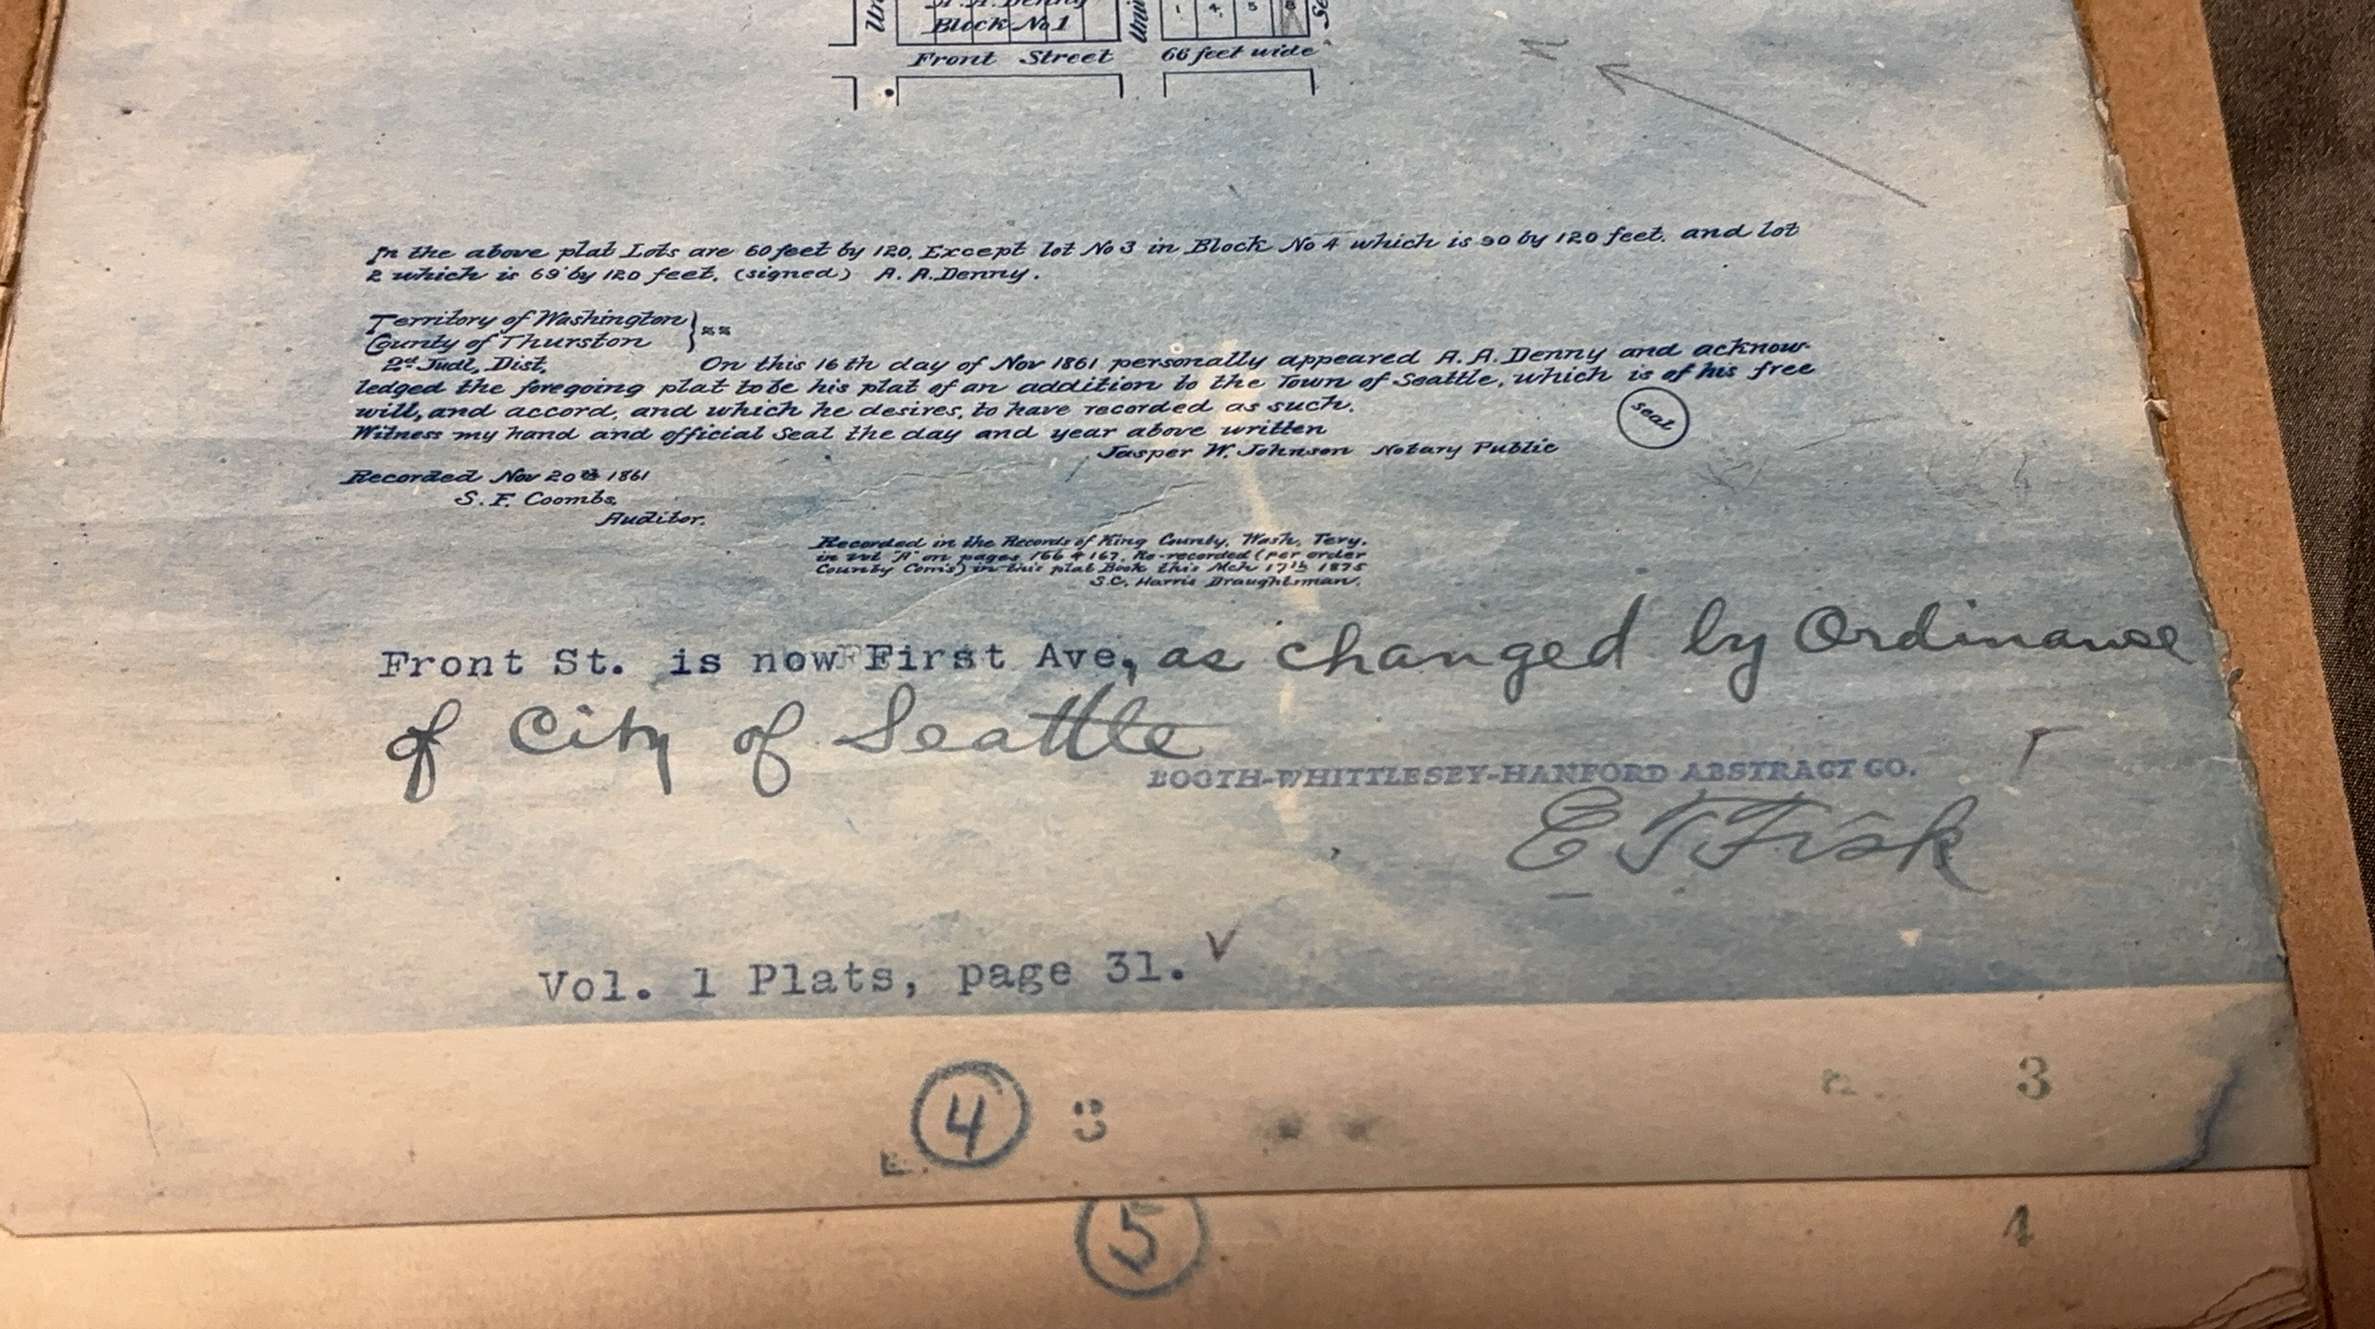 A. A. Denny
Block No 1
1 4 5
Front Street 66 feet wide
N
In the above plat Lots are 60 feet by 120, Except lot No 3 in Block No 4 which is 90 by 120 feet. and lot
2 which is 69 by 120 feet. (signed) A. A. Denny.
Territory of Washington
County of Thurston
2d Judl, Dist, On this 16th day of Nov 1861 personally appeared A. A. Denny and acknow-
ledged the foregoing plat to be his plat of an addition to the Town of Seattle, which is of his free
will, and accord, and which he desires, to have recorded as such.
Witness my hand and official Seal the day and year above written
Seal
Jasper W. Johnson Notary Public
Recorded Nov 20th 1861
S. F. Coombs,
Auditor.
Recorded in the Records of King County, Wash, Tery,
in vol "A" on pages 166 & 167. Re-recorded (per order
County Com's) in this plat Book this Mch 17th 1875
S.C. Harris Draughtsman.
Front St. is now First Ave, as changed by Ordinance
of City of Seattle
BOOTH-WHITTLESEY-HANFORD ABSTRACT CO.
E T Fisk
Vol. 1 Plats, page 31.
4 3 3
5 4